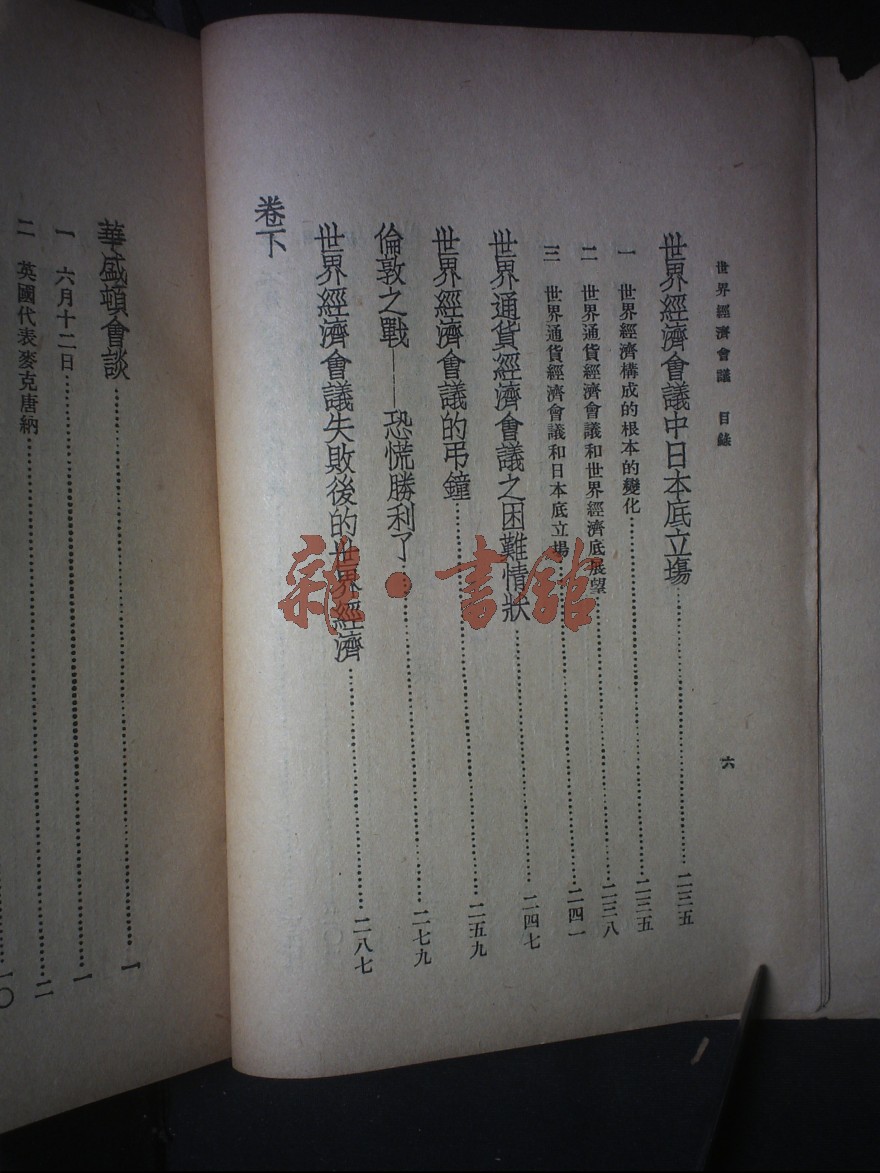 世界經濟會議　目錄
六
世界經濟會議中日本底立場……二三五
一　世界經濟構成的根本的變化……二三五
二　世界通貨經濟會議和世界經濟底展望……二三八
三　世界通貨經濟會議和日本底立場……二四一
世界通貨經濟會議之困難情狀……二四七
世界經濟會議的弔鐘……二五九
倫敦之戰——恐慌勝利了……二七九
世界經濟會議失敗後的世界經濟……二八七
卷下
華盛頓會談……一
一　六月十二日……一
二　英國代表麥克唐納……二
一〇
雜·書館